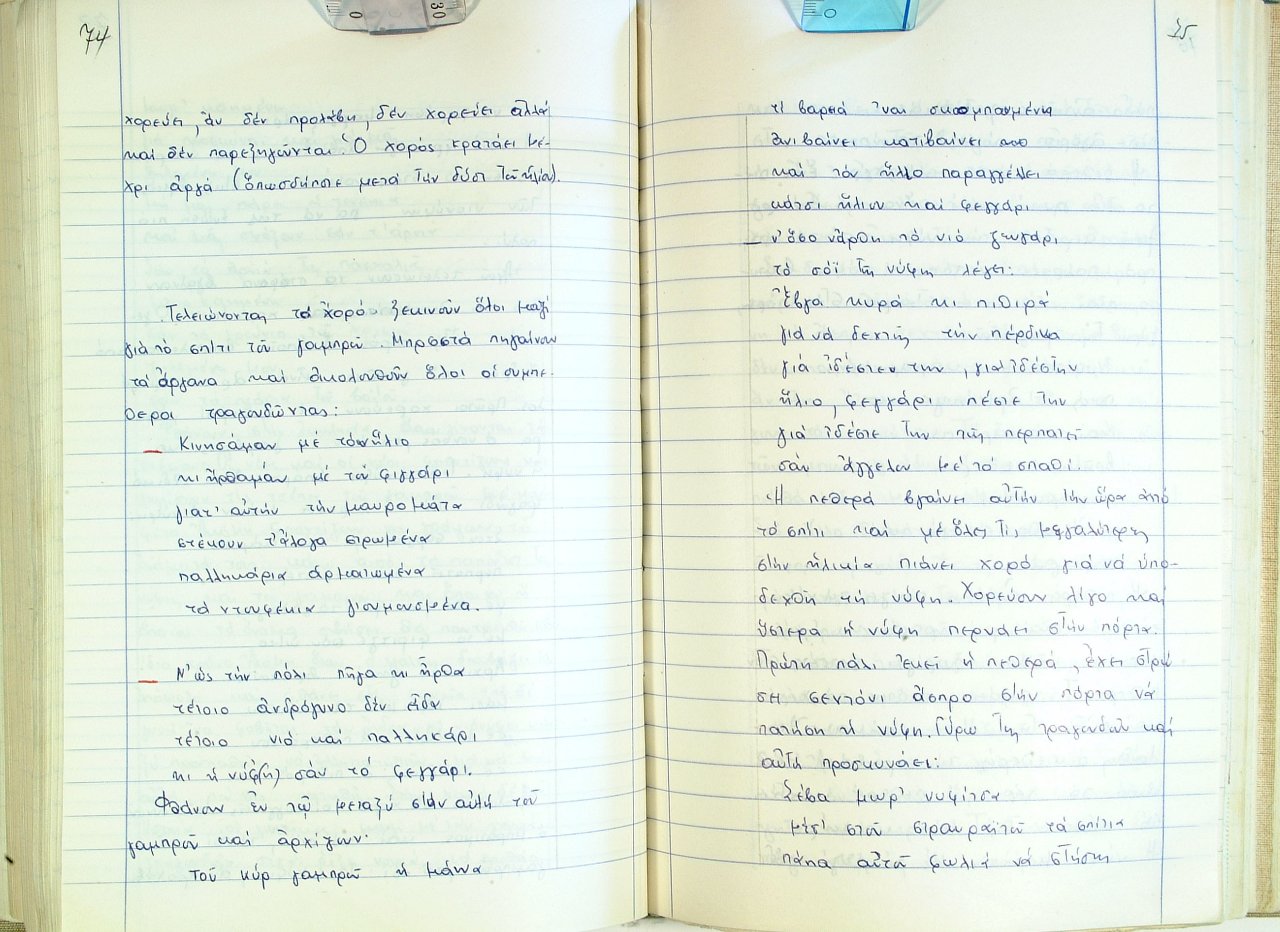 74
χορεύει, ἂν δέν προλάβη, δέν χορεύει ἀλλά
καί δέν παρεξηγοῦνται. Ὁ χορός κρατάει μέ-
χρι ἀργά (ὁπωσδήποτε μετά τήν δύσι τοῦ ἡλίου).
Τελειώνοντας τό χορό ξεκινοῦν ὅλοι μαζί
γιά τό σπίτι τοῦ γαμπροῦ. Μπροστά πηγαίνουν
τά ὄργανα καί ἀκολουθοῦν ὅλοι οἱ συμπε-
θεροι τραγουδῶντας:
Κινησάμαν μέ τόν ἥλιο
κι ἤρθαμάν μέ τόν φιγγάρι
γιατ' αὐτήν τήν μαυρομάτα
στέκουν τ' ἄλογα στρωμένα
παλληκάρια ἀρματωμένα
τά ντουφέκια γιουμουσμένα.
Ν' ὡς τήν πόλι πῆγα κι ἦρθα
τέτοιο ἀνδρόγυνο δέν εἶδα
τέτοιο νιό καί παλληκάρι
κι ἡ νύφ(η) σάν τό φεγγάρι.
Φθάνουν ἐν τῷ μεταξύ στήν αὐλή τοῦ
γαμπροῦ καί ἀρχίζουν·
Τοῦ κύρ γαμπροῦ ἡ μάνα
75
τί βαρειά 'ναι
ἀνιβαίνει κατιβαίνει
καί τόν ἥλιο παραγγέλει
κάτσι ἥλιον καί φεγγάρι
ν' ὅσο νἄρθη τό νιό ζευγάρι
τό σόϊ τῆς νύφης λέγει:
Ἔβγα κυρά κι πιθιρά
γιά νά δεχτῆς τήν πέρδικα
γιά ἰδέστεν την, γιά ἰδέστην
ἥλιο, φεγγάρι πέστε την
γιά ἰδέστε την πῶς περπατεῖ
σάν ἄγγελον μέ τό σπαθί.
Ἡ πεθερά βγαίνει αὐτήν τήν ὥρα ἀπό
τό σπίτι καί μέ ὅλες τίς μεγαλύτερες
στήν ἡλικία πιάνει χορό γιά νά ὑπο-
δεχθῆ τή νύφη. Χορεύουν λίγο καί
ὕστερα ἡ νύφη περνάει στήν πόρτα.
Πρώτη πάλι ἐκεῖ ἡ πεθερά, ἔχει στρώ
ση σεντόνι ἄσπρο στήν πόρτα νά
πατήση ἡ νύφη. Γύρω της τραγουδοῦν καί
αὐτή προσκυνάει:
Σέβα μωρ' νυφίτσα
μέσ' στοῦ σταυραϊτοῦ τά σπίτια
αὐτοῦ φωλιά νά στήσης